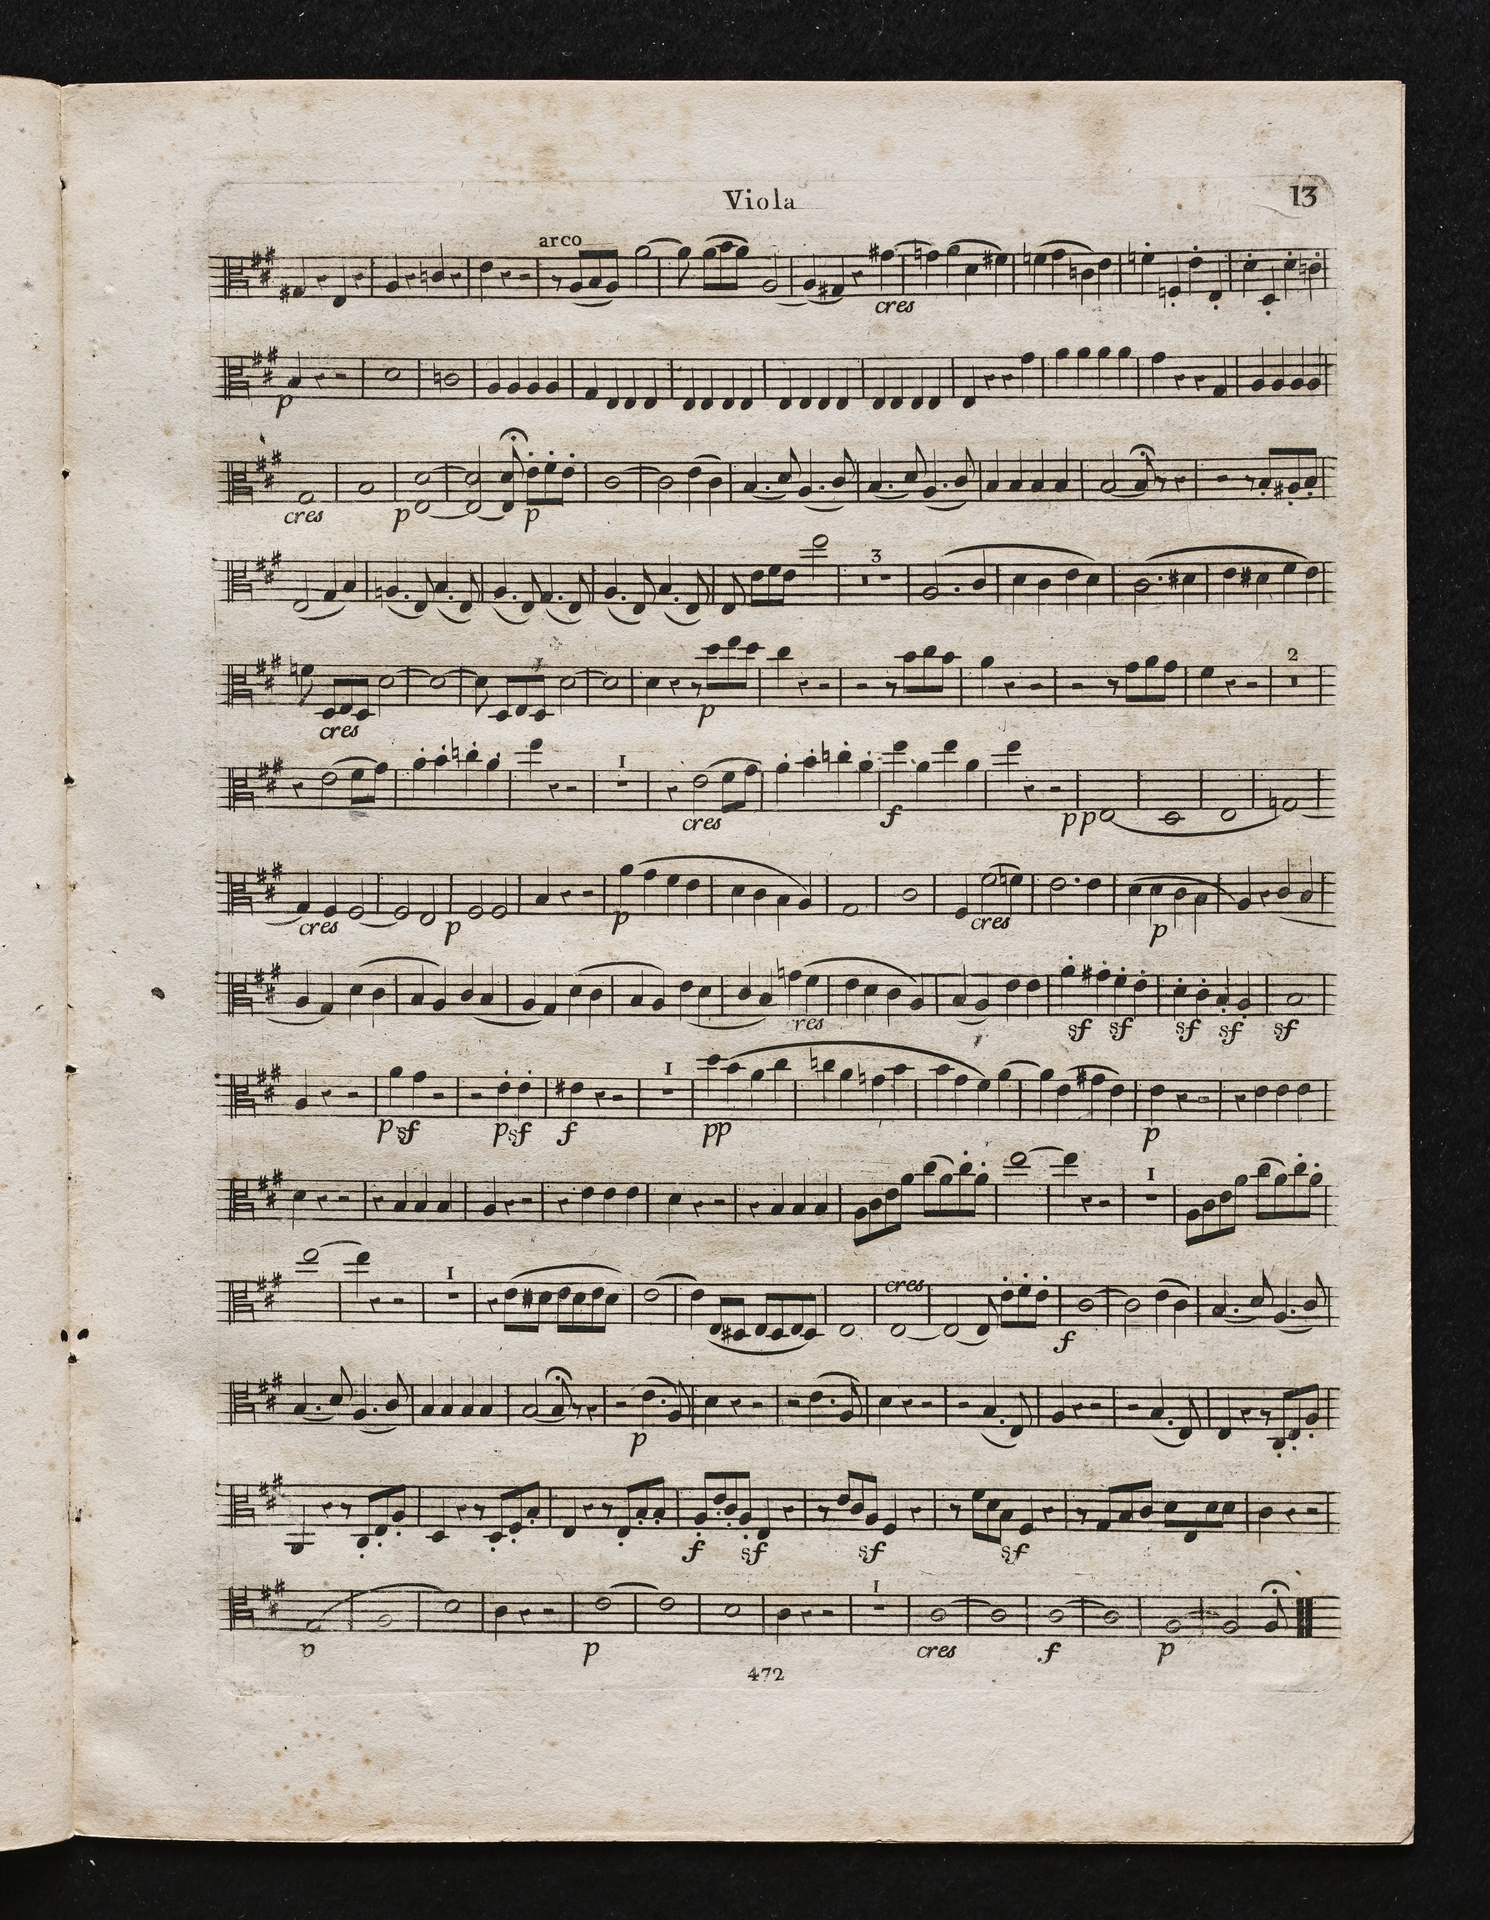 Viola
13
arco
cres
p
cres
p
p
3
cres
p
2
I
cres
f
pp
cres
p
p
cres
p
res
sf sf sf sf sf
I
p sf p sf f pp p
I
I
cres
f
p
f sf sf sf
I
p p cres f p
472